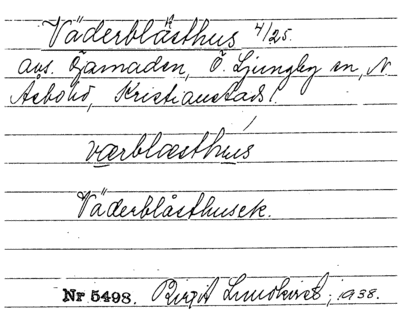 Väderblåsthus 4/25.
avs. Gamaden, Ö. Ljungby sn, N
Åsbo hd, Kristianstads l.
værblæsthus
Väderblåsthusek.
Nr 5498. Birgit Lundkvist, 1938.